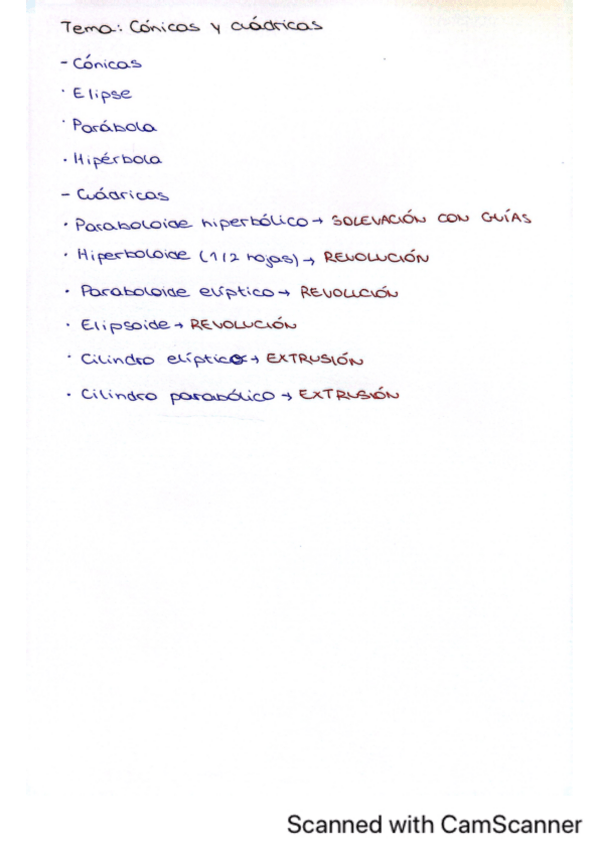 Tema: Cónicas y cuádricas
- Cónicas
· Elipse
· Parábola
· Hipérbola
- Cuádricas
· Paraboloide hiperbólico → SOLEVACIÓN CON GUÍAS
· Hiperboloide (1/2 hojas) → REVOLUCIÓN
· Paraboloide elíptico → REVOLUCIÓN
· Elipsoide → REVOLUCIÓN
· Cilindro elíptico → EXTRUSIÓN
· Cilindro parabólico → EXTRUSIÓN
Scanned with CamScanner